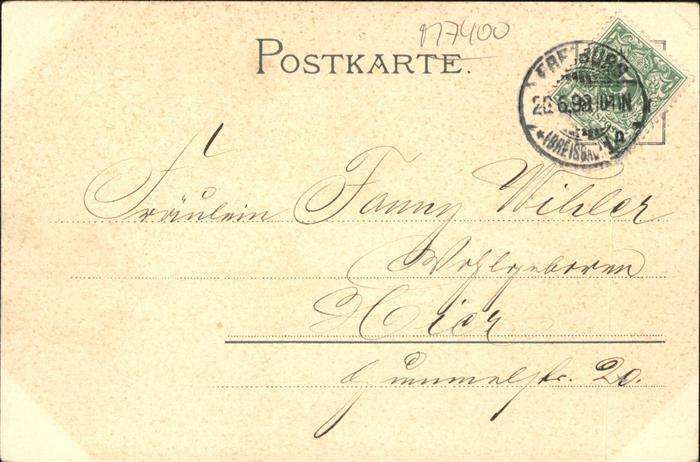 M7400
POSTKARTE.
FREIBURG
20.6.98.10-11N
* (BREISGAU) *
Fräulein Fanny Wihler
Wohlgeboren
Hier
Gummelstr. 20.